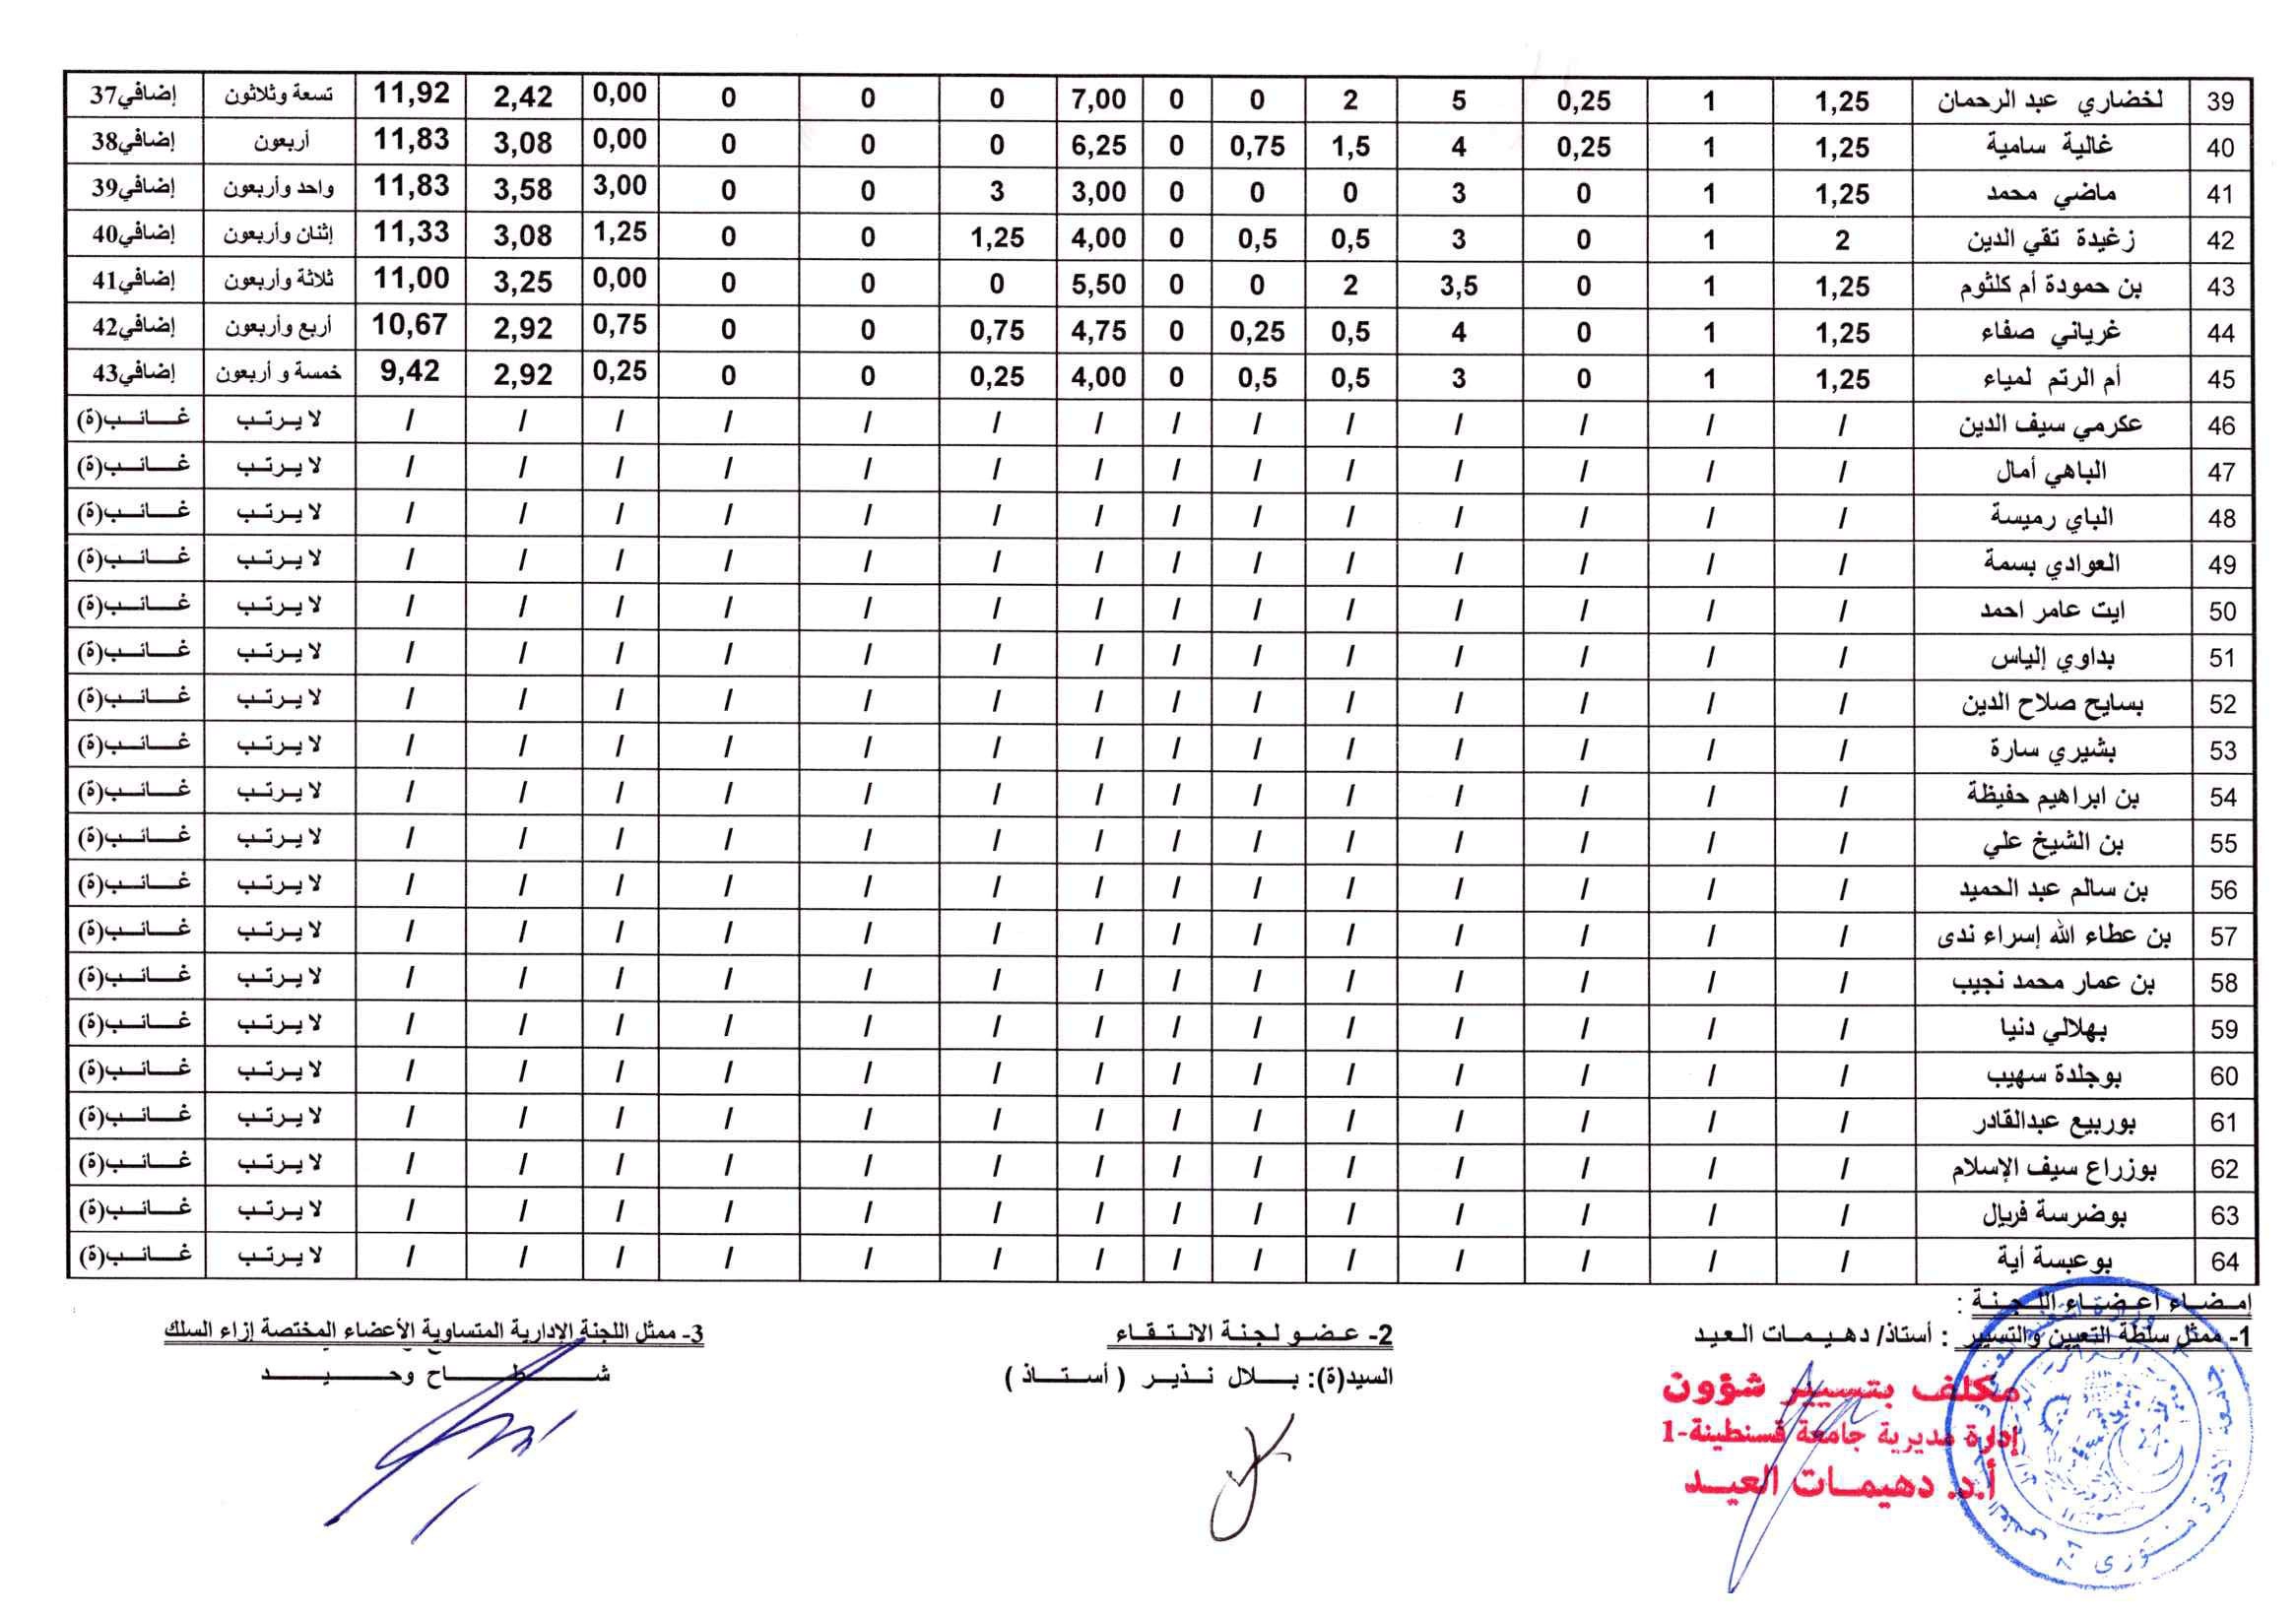 39 لخضاري عبد الرحمان 1,25 1 0,25 5 2 0 0 7,00 0 0 0 0,00 2,42 11,92 تسعة وثلاثون إضافي37
40 غالية سامية 1,25 1 0,25 4 1,5 0,75 0 6,25 0 0 0 0,00 3,08 11,83 أربعون إضافي38
41 ماضي محمد 1,25 1 0 3 0 0 0 3,00 3 0 0 3,00 3,58 11,83 واحد وأربعون إضافي39
42 زغيدة تقي الدين 2 1 0 3 0,5 0,5 0 4,00 1,25 0 0 1,25 3,08 11,33 إثنان وأربعون إضافي40
43 بن حمودة أم كلثوم 1,25 1 0 3,5 2 0 0 5,50 0 0 0 0,00 3,25 11,00 ثلاثة وأربعون إضافي41
44 غرياني صفاء 1,25 1 0 4 0,5 0,25 0 4,75 0,75 0 0 0,75 2,92 10,67 أربع وأربعون إضافي42
45 أم الرتم لمياء 1,25 1 0 3 0,5 0,5 0 4,00 0,25 0 0 0,25 2,92 9,42 خمسة و أربعون إضافي43
46 عكرمي سيف الدين / / / / / / / / / / / / / / لا يرتب غائب(ة)
47 الباهي أمال / / / / / / / / / / / / / / لا يرتب غائب(ة)
48 الباي رميسة / / / / / / / / / / / / / / لا يرتب غائب(ة)
49 العوادي بسمة / / / / / / / / / / / / / / لا يرتب غائب(ة)
50 ايت عامر احمد / / / / / / / / / / / / / / لا يرتب غائب(ة)
51 بداوي إلياس / / / / / / / / / / / / / / لا يرتب غائب(ة)
52 بسايح صلاح الدين / / / / / / / / / / / / / / لا يرتب غائب(ة)
53 بشيري سارة / / / / / / / / / / / / / / لا يرتب غائب(ة)
54 بن ابراهيم حفيظة / / / / / / / / / / / / / / لا يرتب غائب(ة)
55 بن الشيخ علي / / / / / / / / / / / / / / لا يرتب غائب(ة)
56 بن سالم عبد الحميد / / / / / / / / / / / / / / لا يرتب غائب(ة)
57 بن عطاء الله إسراء ندى / / / / / / / / / / / / / / لا يرتب غائب(ة)
58 بن عمار محمد نجيب / / / / / / / / / / / / / / لا يرتب غائب(ة)
59 بهلالي دنيا / / / / / / / / / / / / / / لا يرتب غائب(ة)
60 بوجلدة سهيب / / / / / / / / / / / / / / لا يرتب غائب(ة)
61 بوربيع عبدالقادر / / / / / / / / / / / / / / لا يرتب غائب(ة)
62 بوزراع سيف الإسلام / / / / / / / / / / / / / / لا يرتب غائب(ة)
63 بوضرسة فريال / / / / / / / / / / / / / / لا يرتب غائب(ة)
64 بوعبسة أية / / / / / / / / / / / / / / لا يرتب غائب(ة)
إمضاء أعضاء اللجنة :
1- ممثل سلطة التعيين والتسيير : أستاذ/ دهيمات العيد
2- عضو لجنة الانتقاء
3- ممثل اللجنة الإدارية المتساوية الأعضاء المختصة إزاء السلك
السيد(ة): بلال نذير ( أستاذ )
شطاح وحيد
مكلف بتسيير شؤون
إدارة مديرية جامعة قسنطينة-1
أ.د. دهيمات العيد
جامعة الاخوة منتوري